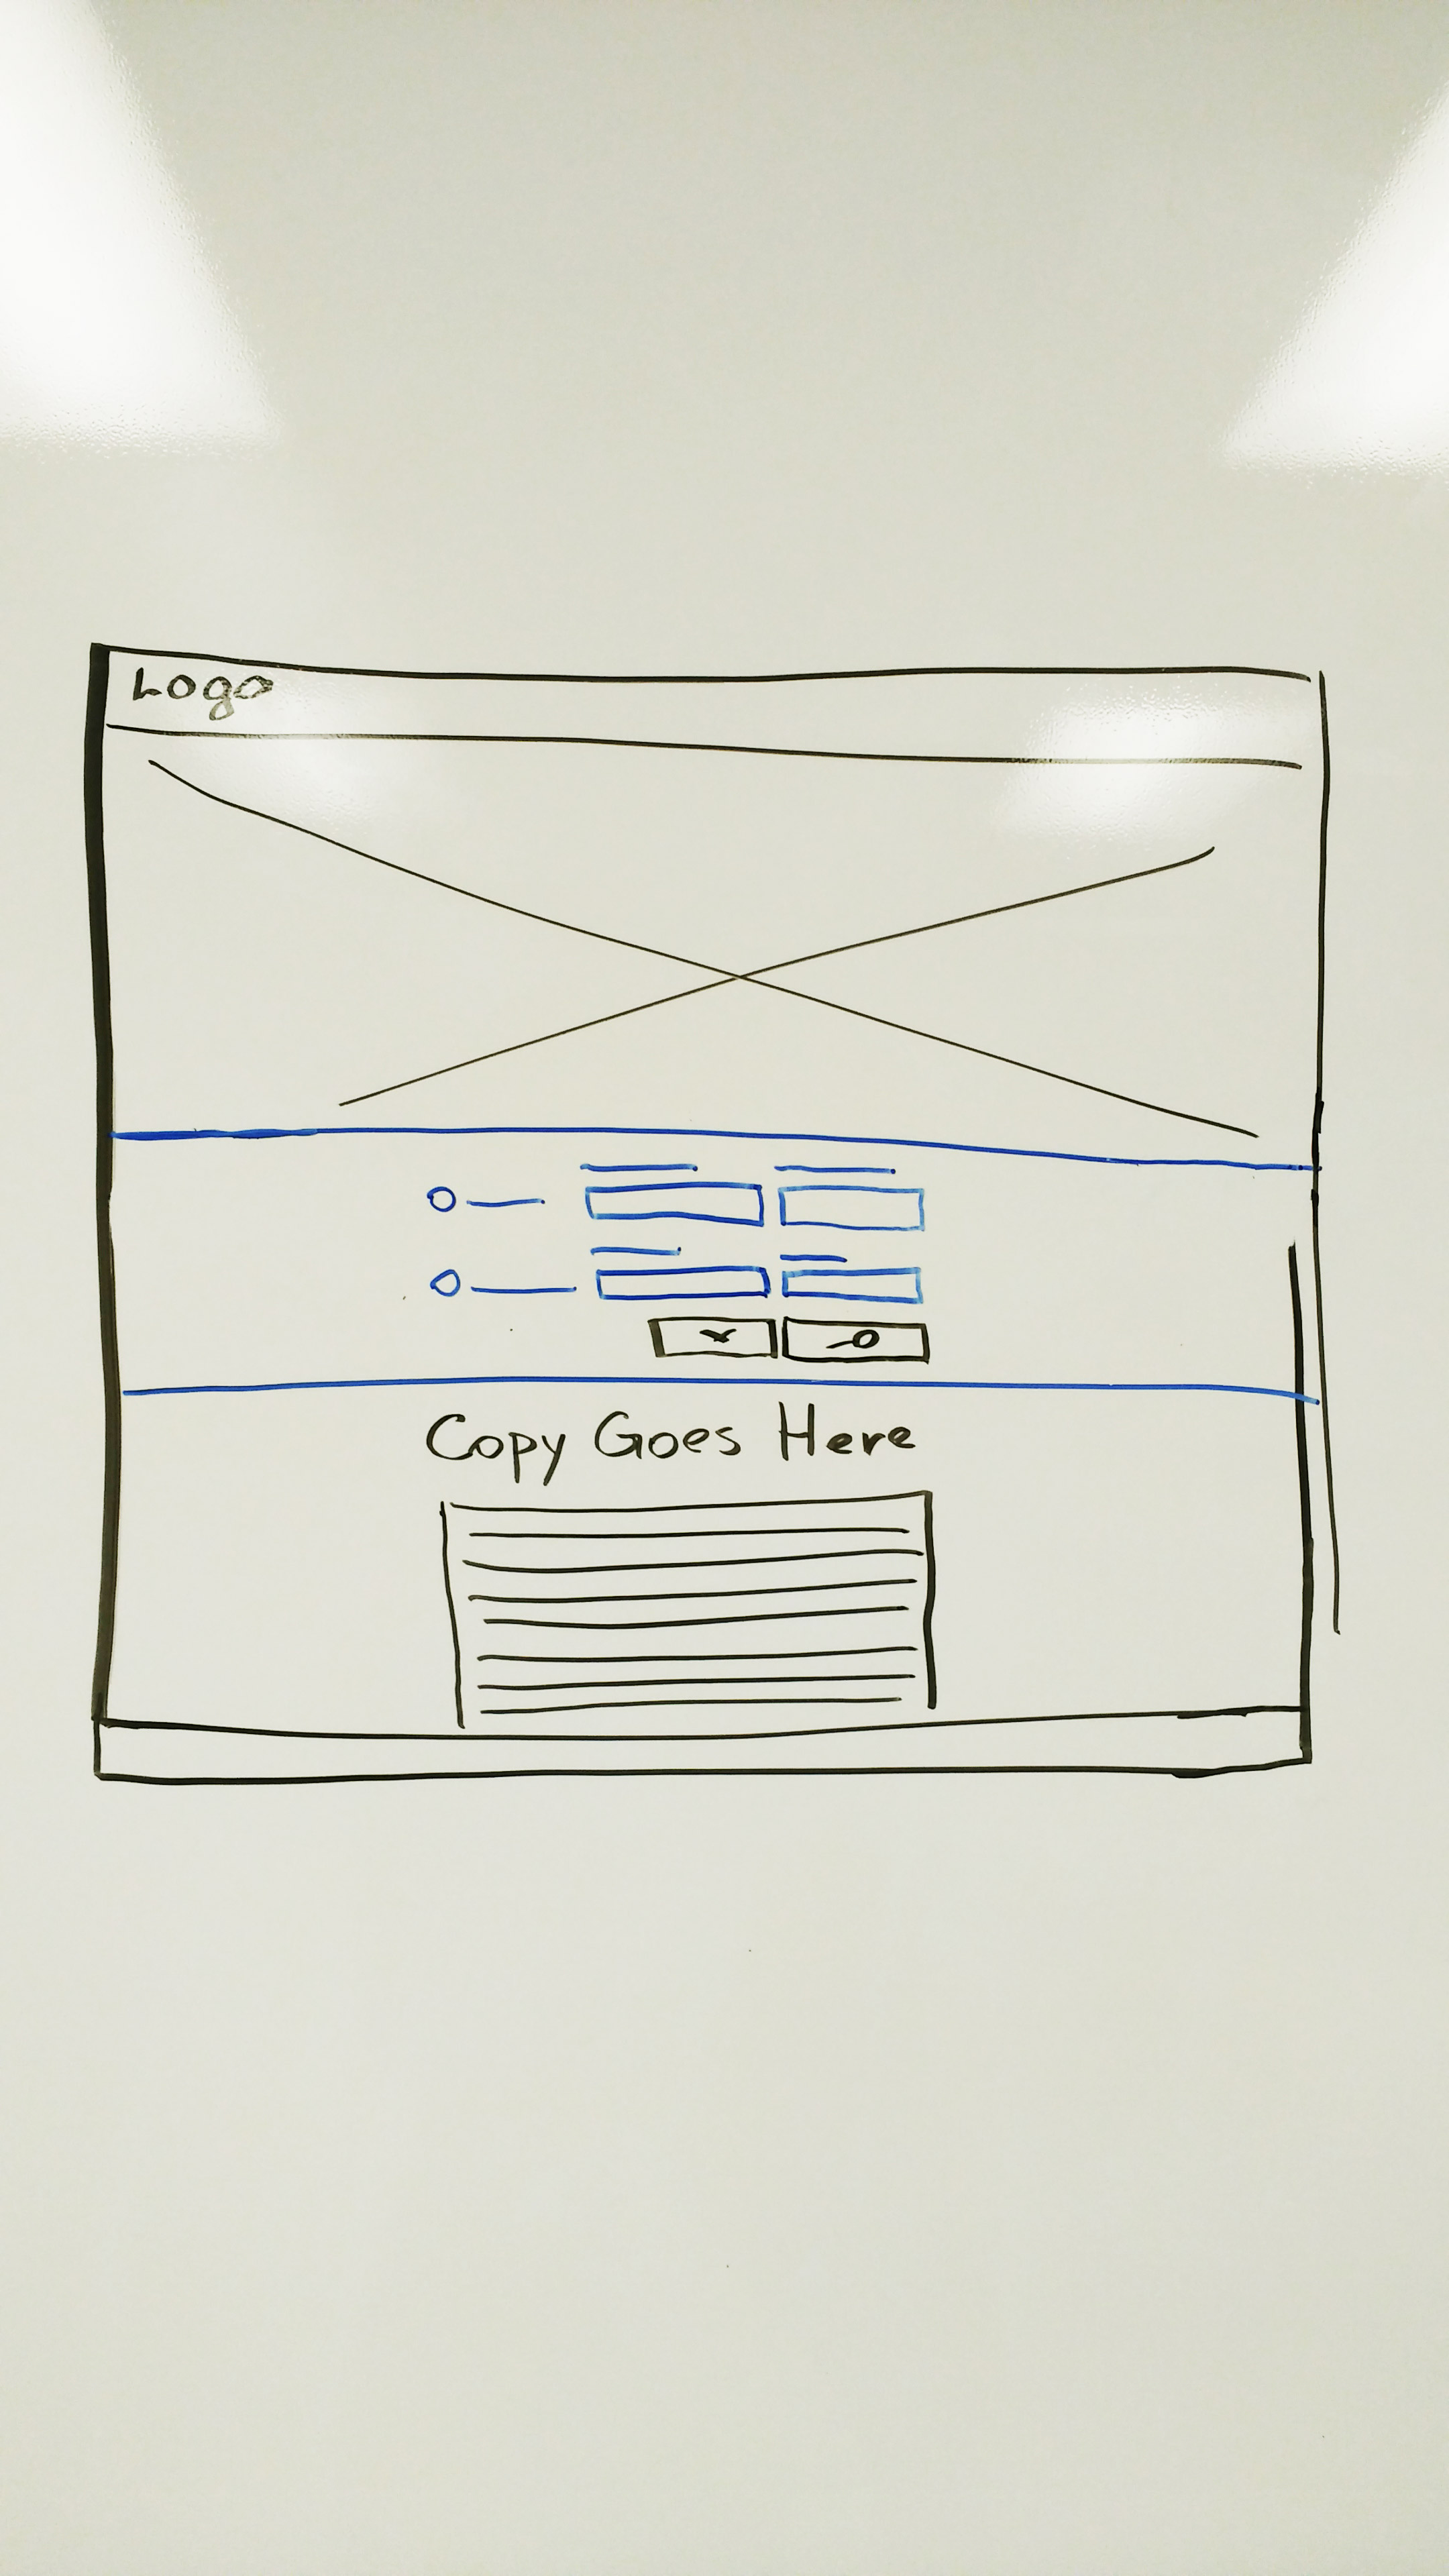 Logo
Copy Goes Here